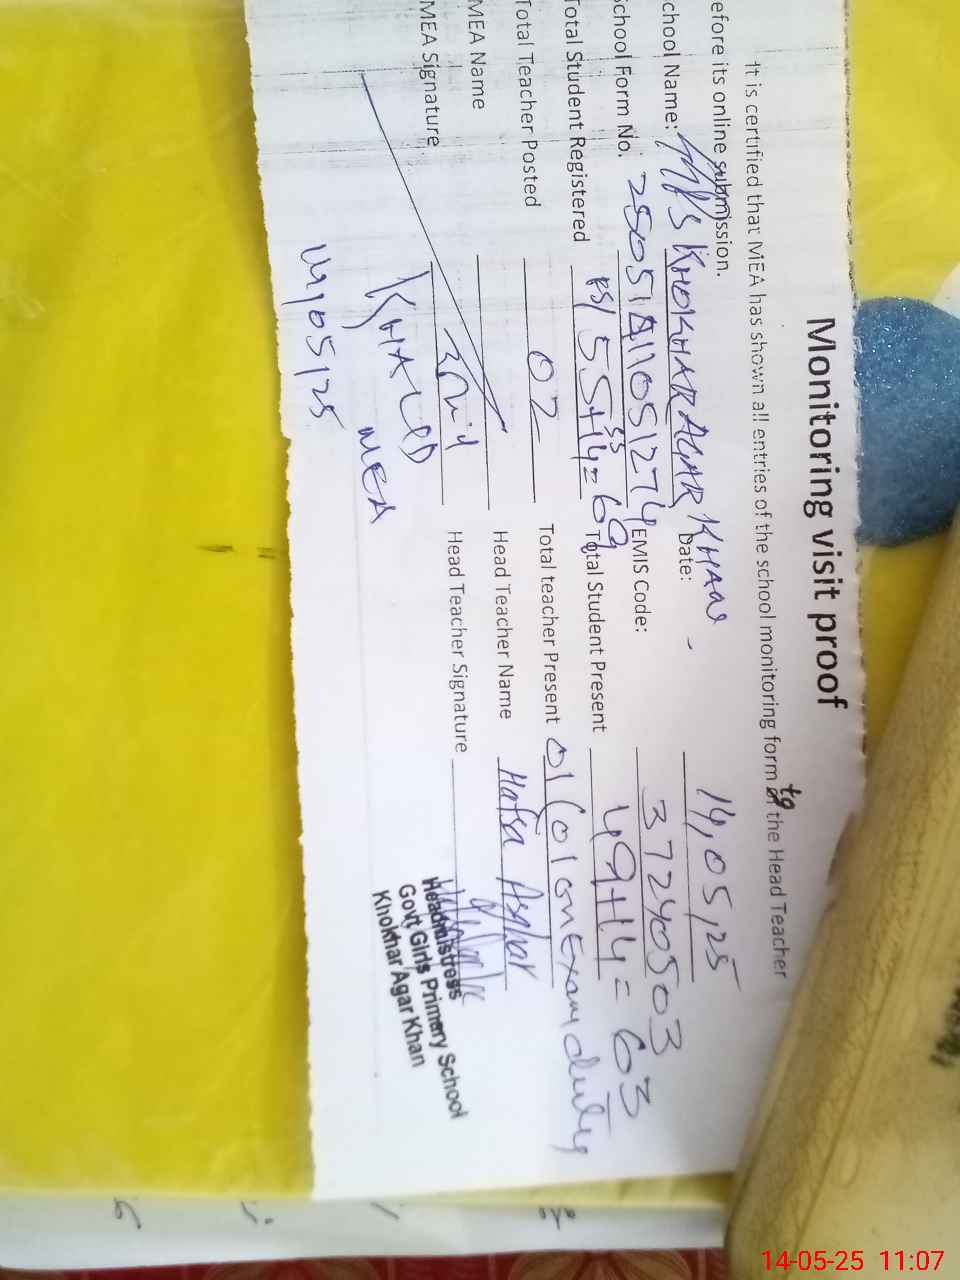 Monitoring visit proof
It is certified that MEA has shown all entries of the school monitoring form to the Head Teacher
efore its online submission.
chool Name: KHOKHAR AGAR KHAN Date: 14/05/25
School Form No. EMIS Code: 37240503
Total Student Registered 55+14=69 Total Student Present 49+14=63
Total Teacher Posted 02 Total teacher Present 01 (01 on Exam duty
MEA Name Head Teacher Name Hafsa Asghar
MEA Signature Head Teacher Signature
KHALID
MEA
14/05/25
Headmistress
Govt Girls Primary School
Khokhar Agar Khan
14-05-25 11:07